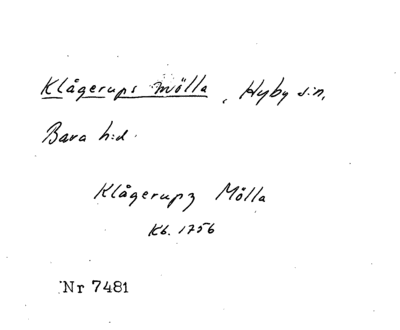 Klågerups mölla, Hyby s:n,
Bara h:d.
Klågerupz Mölla
Kb. 1756
Nr 7481